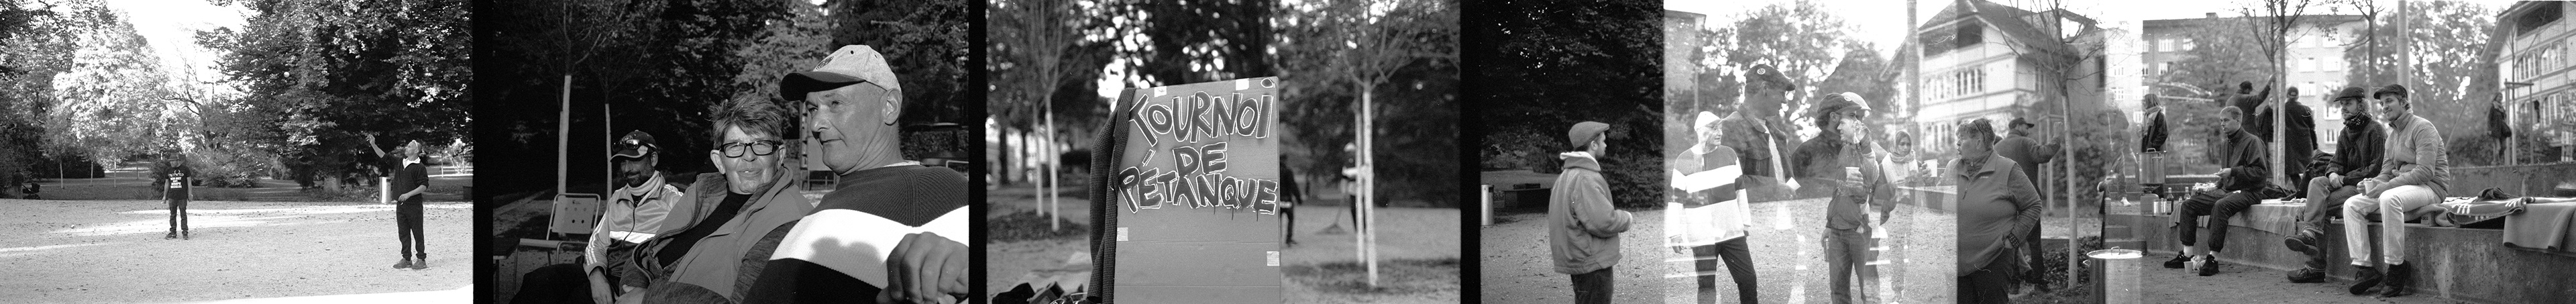 TOURNOI
DE
PÉTANQUE